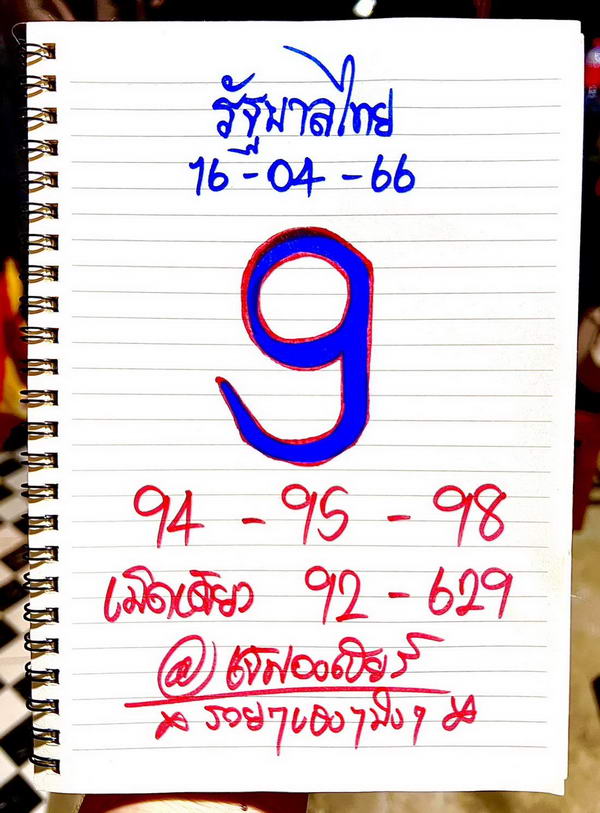 รัฐบาลไทย
16-04-66
9
94 - 95 - 98
เม็ดเดียว 92 - 629
@
รวยๆเฮงๆปังๆ